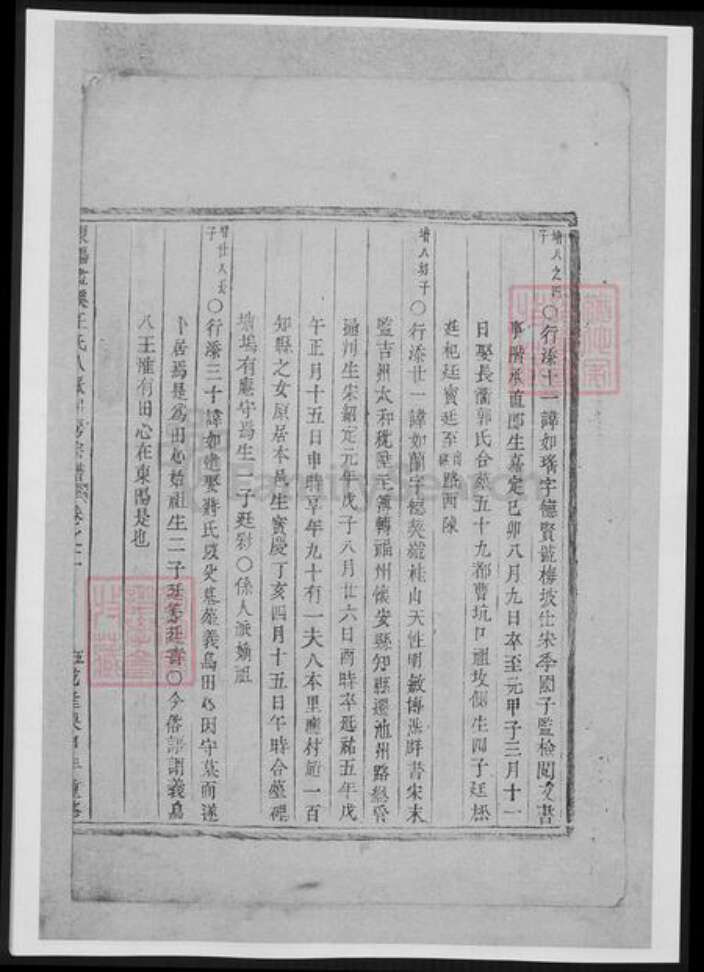 墻八之四子○行溱十一諱如璠字德賢號梅坡仕宋季國子監檢閱文書
事階承直郎生嘉定己卯八月九日卒至元甲子三月十一
日娶長衢郭氏合葬五十九都曹坑口祖坟側生四子廷
廷杞廷實廷至 路西陳
墻八幼子○行溱廿一諱如蘭字德契號桂山天性明敏博洽群書宋末
監吉州太和稅陞主簿轉福州懷安縣知縣遷池州路總管
通判生宋紹定元年戊子八月廿六日酉時卒延祐五年戊
午正月十五日申時享年九十有一夫八本里應村趙一百
知縣之女原居本邑生寶慶丁亥四月十五日午時合葬
塘塢有應守焉生一子廷彩○係人派嫡祖
廿八長子○行溱三十諱如達娶蔣氏歿父墓葬義烏田心因守墓而遂
卜居焉是為田心始祖生二子廷 廷 ○今俗語謂義烏
八王惟有田心在東陽是也
東陽 王氏八 宗譜 卷之